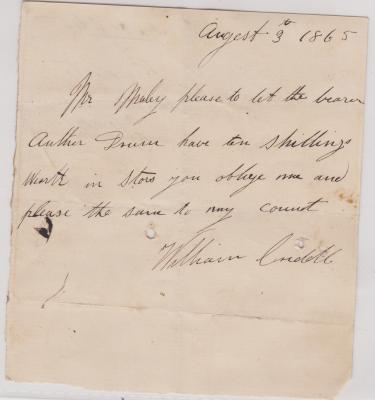 Augest 3th 1865
Mr Maby please to let the bearer
Auther Drum have ten shillings
Werth in stors you oblige me and
please the same to my count
William